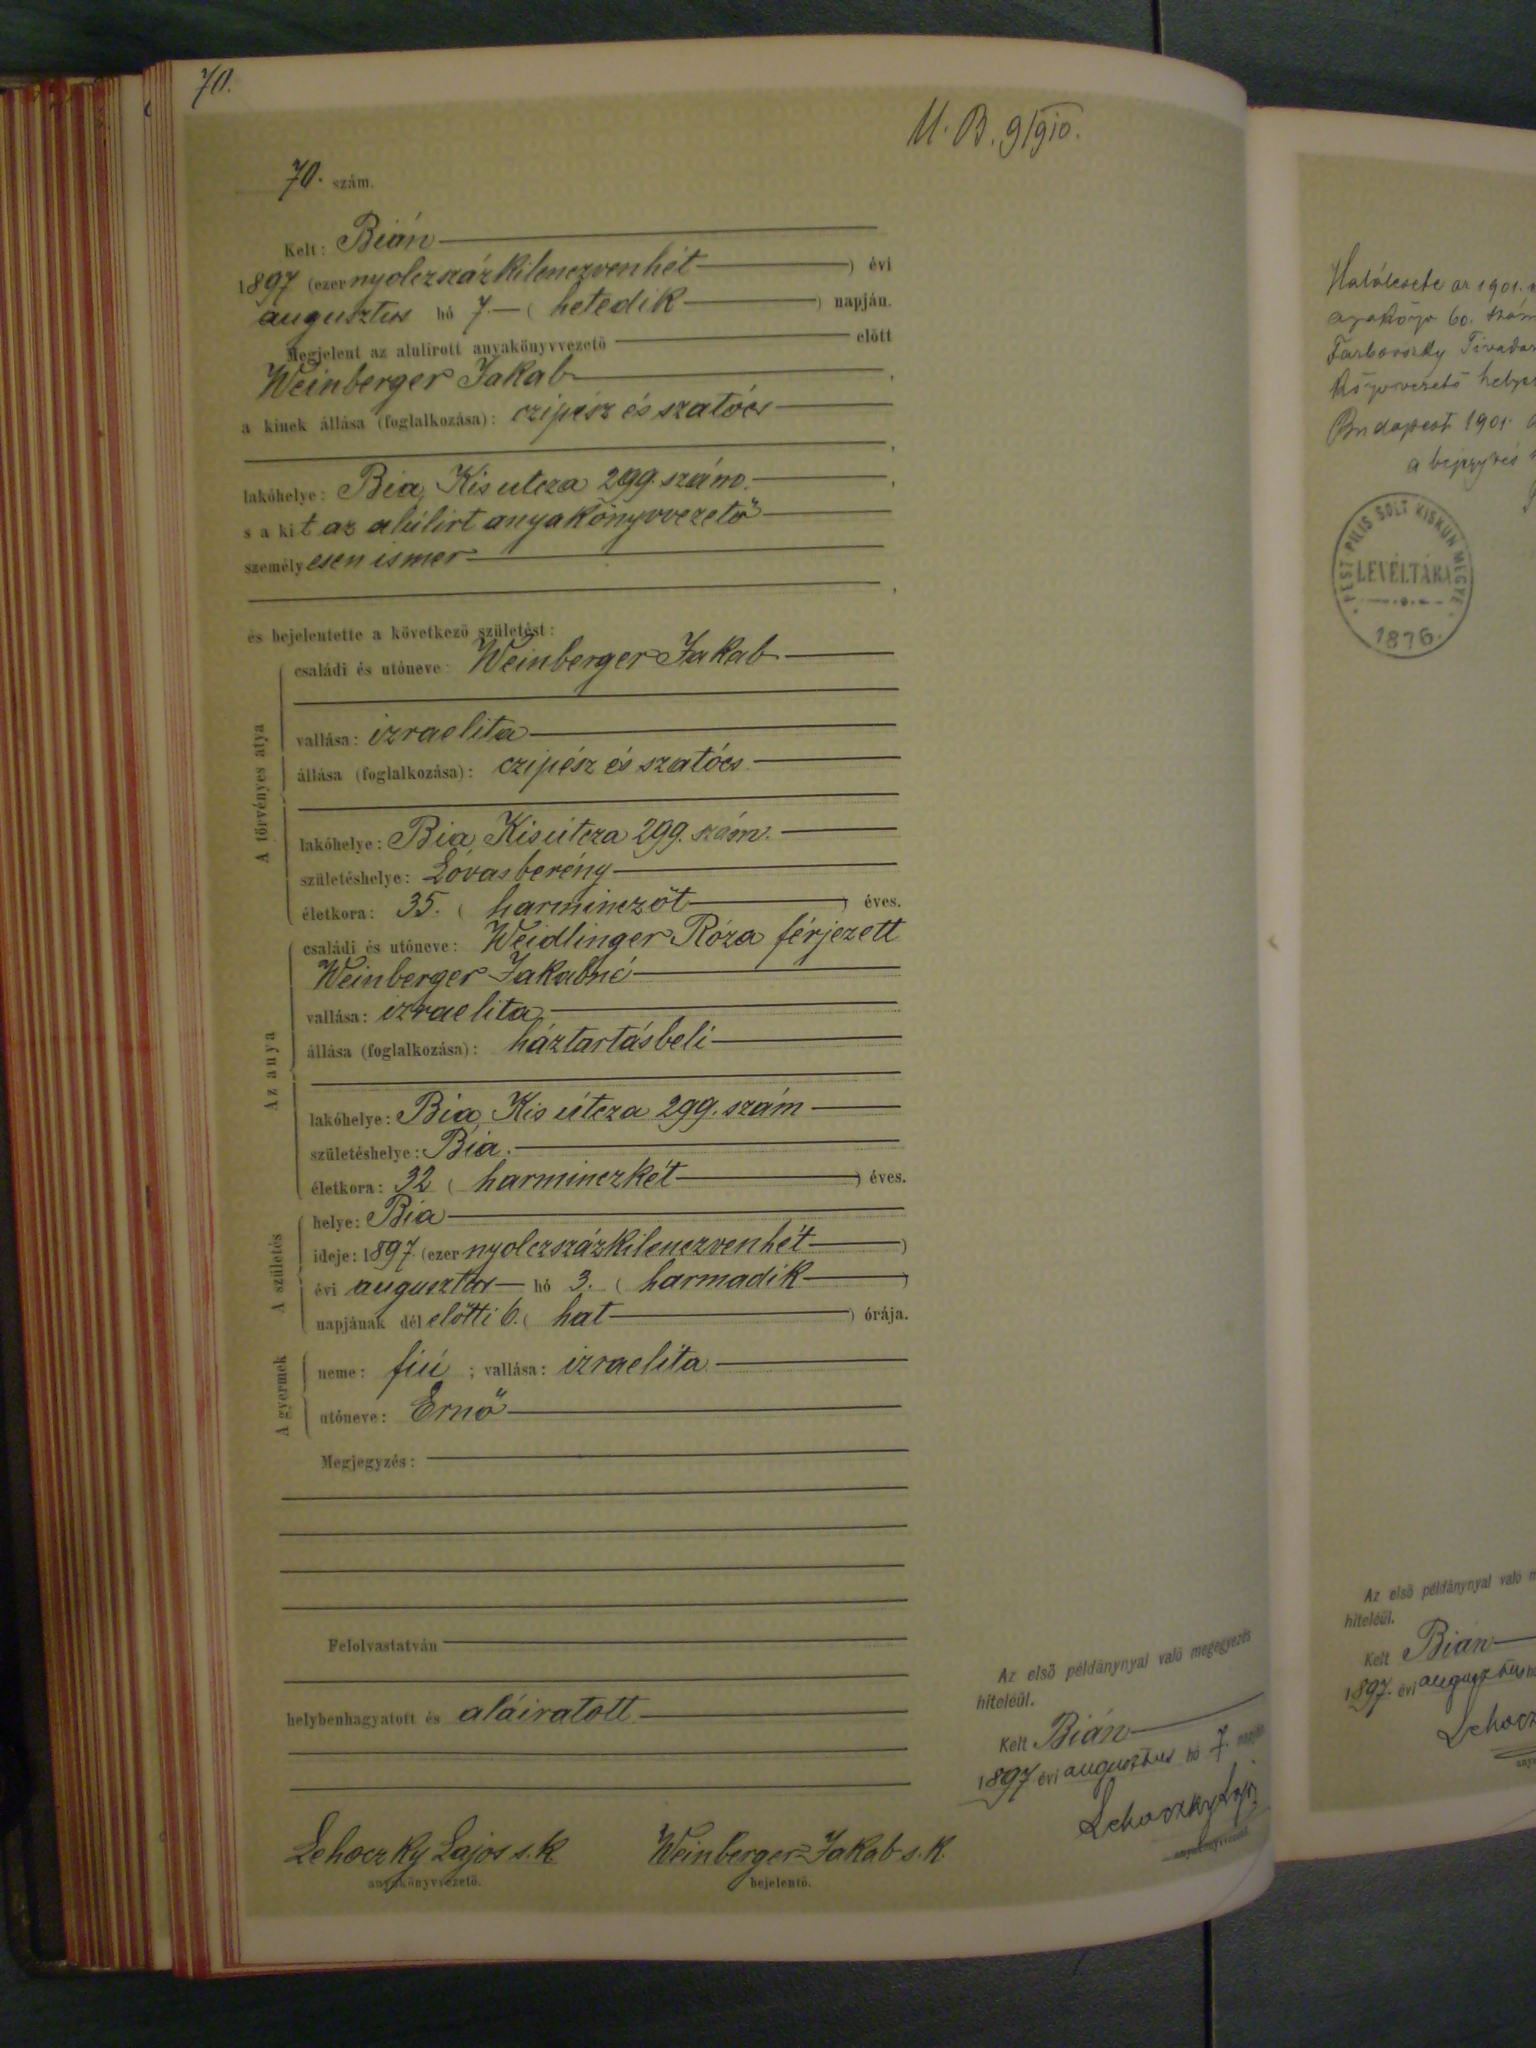 70.
U. B. 9/910.
70. szám.
Kelt: Bián
1897 (ezernyolczszázkilenczvenhét) évi
augusztus hó 7. (hetedik) napján.
Megjelent az alulirott anyakönyvvezető előtt
Weinberger Jakab,
a kinek állása (foglalkozása): czipész és szatócs
,
lakóhelye: Bia, Kis utcza 299. szám.,
s a kit az alúlirt anyakönyvvezető
személyesen ismer
,
és bejelentette a következő születést:
A törvényes atya
családi és utóneve: Weinberger Jakab
vallása: izraelita
állása (foglalkozása): czipész és szatócs
lakóhelye: Bia, Kis útcza 299. szám.
születéshelye: Lovasberény
életkora: 35. (harminczöt) éves.
Az anya
családi és utóneve: Weidlinger Róza férjezett
Weinberger Jakabné
vallása: izraelita
állása (foglalkozása): háztartásbeli
lakóhelye: Bia, Kis útcza 299. szám
születéshelye: Bia.
életkora: 32 (harminczkét) éves.
A születés
helye: Bia
ideje: 1897. (ezernyolczszázkilenczvenhét)
évi augusztus hó 3. (harmadik)
napjának délelőtti 6. (hat) órája.
A gyermek
neme: fiú ; vallása: izraelita
utóneve: Ernő
Megjegyzés:
Felolvastatván
helybenhagyatott és aláiratott
Lehoczky Lajos s. k.
anyakönyvvezető.
Weinberger Jakab s. k.
bejelentő.
Az első példánynyal való megegyezés
hiteléül.
Kelt Bián
1897 évi augusztus hó 7. napján
Lehoczky Lajos
anyakönyvvezető.
Halálesete az 1901.
60. szám
Tivadar
Budapest 1901.
a bejegyzés
PEST PILIS SOLT KISKUN MEGYE
LEVÉLTÁRA
1876.
Az első példánynyal való
hiteléül.
Kelt Bián
1897. évi augusztus